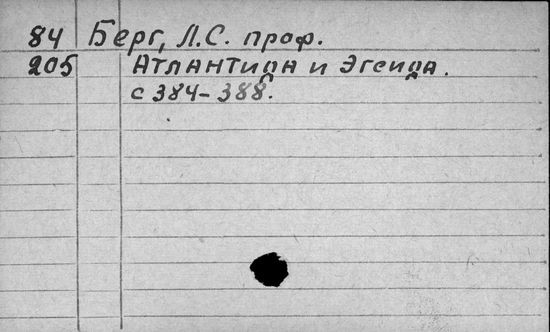 84 Берг, Л.С. проф.
205 Атлантида и Эгеида.
с 384-388.